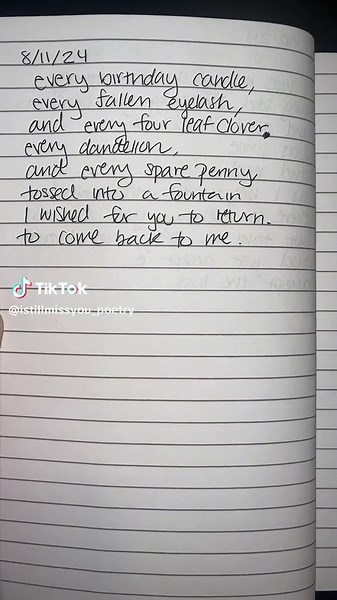 8/11/24
every birthday candle,
every fallen eyelash,
and every four leaf clover,
every dandelion,
and every spare penny,
tossed into a fountain
I wished for you to return.
to come back to me.
TikTok
@istillmissyou_poetry